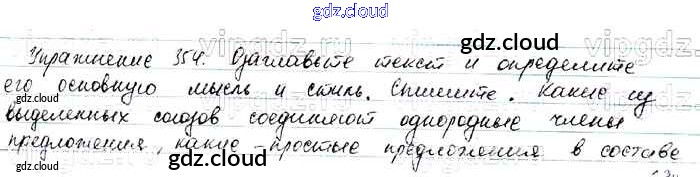 gdz.cloud
gdz.cloud
Упражнение 354. Озаглавьте текст и определите
его основную мысль и стиль. Спишите. Какие из
выделенных союзов соединяют однородные члены
предложения, какие - простые предложения в составе